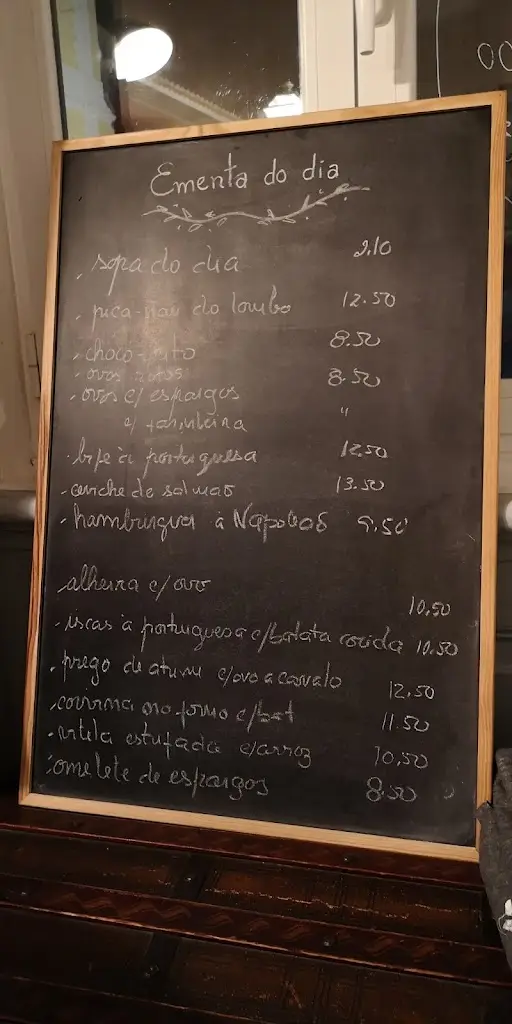 Ementa do dia
. sopa do dia 2.10
. pica-pau do lombo 12.50
. choco-frito 8.50
. ovos rotos 8.50
. ovos c/ espargos "
c/ farinheira
. bife à portuguesa 12.50
. ceviche de salmão 13.50
. hamburguer à Napoleão 9.50
. alheira c/ ovo 10,50
. iscas à portuguesa c/batata cozida 10.50
. prego de atum c/ovo a cavalo 12,50
. corvina no forno c/bat 11.50
. vitela estufada c/arroz 10,50
. omelete de espargos 8.50